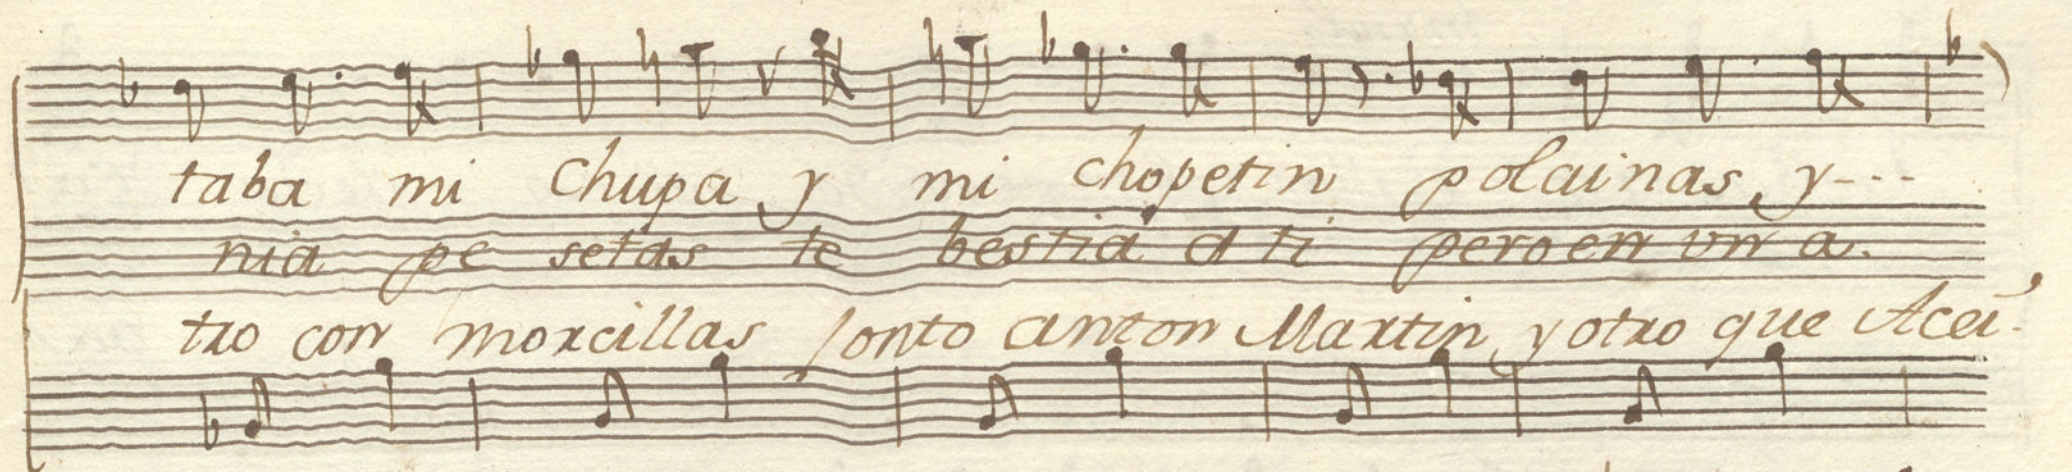 taba mi chupa y mi chopetin polainas y---
nia pe setas te bestia a ti pero en un a.
tro con morcillas junto anton Martin y otro que Acei-